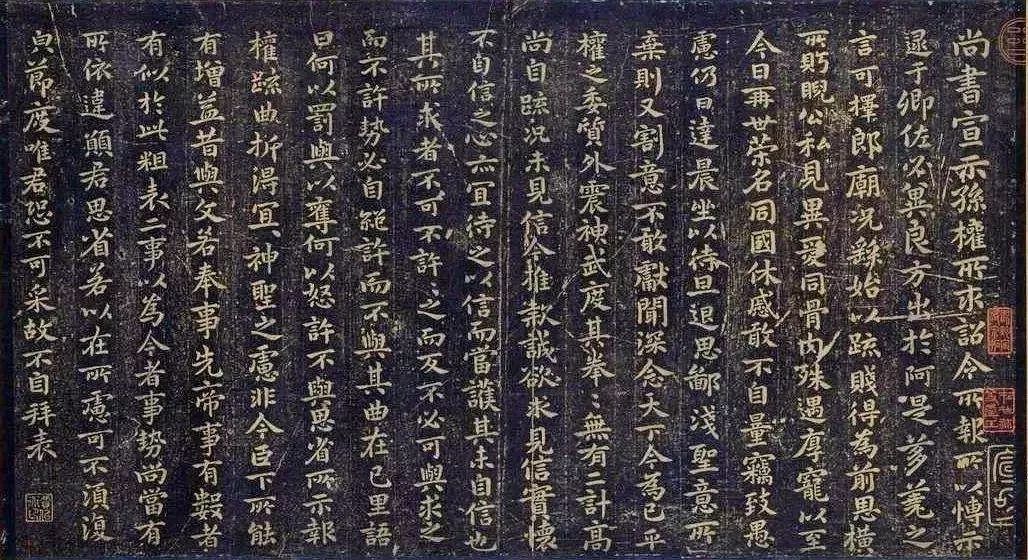 尚書宣示孫權所求詔令所報所以博示
逮于卿佐必冀良方出於阿是芻蕘之
言可擇郎廟況繇始以疏賤得為前恩橫
所眄睨公私見異愛同骨肉殊遇厚寵以至
今日再世榮名同國休慼敢不自量竊致愚
慮仍日達晨坐以待旦退思鄙淺聖意所
棄則又割意不敢獻聞深念天下今為已平
權之委質外震神武度其拳〻無有二計高
尚自疏況未見信今推款誠欲求見信實懷
不自信之心亦宜待之以信而當護其未自信也
其所求者不可不許〻之而反不必可與求之
而不許勢必自絕許而不與其曲在己里語
曰何以罰與以奪何以怒許不與思省所示報
權疏曲折得宜宜神聖之慮非今臣下所能
有增益昔與文若奉事先帝事有數者
有似於此粗表二事以為今者事勢尚當有
所依違願君思省若以在所慮可不須復
貞節度唯君恐不可采故不自拜表